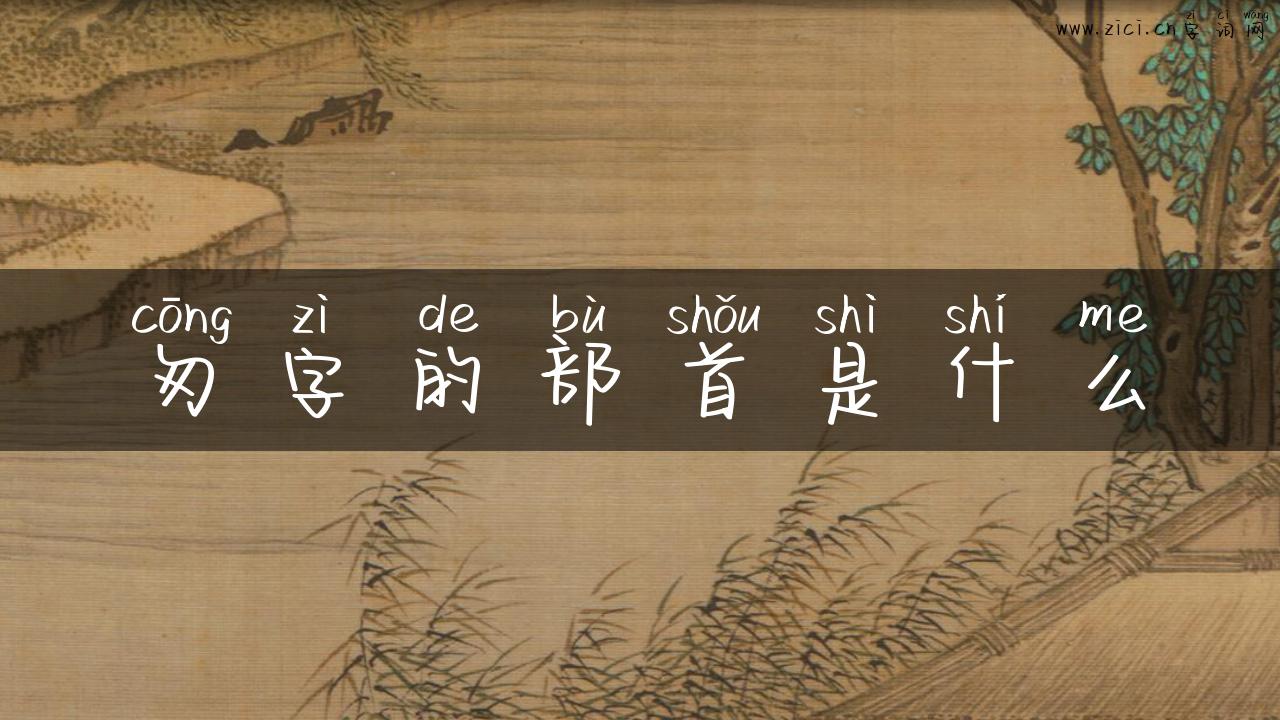 zì cí wǎng
www.zici.cn字词网
cōng zì de bù shǒu shì shí me
匆字的部首是什么